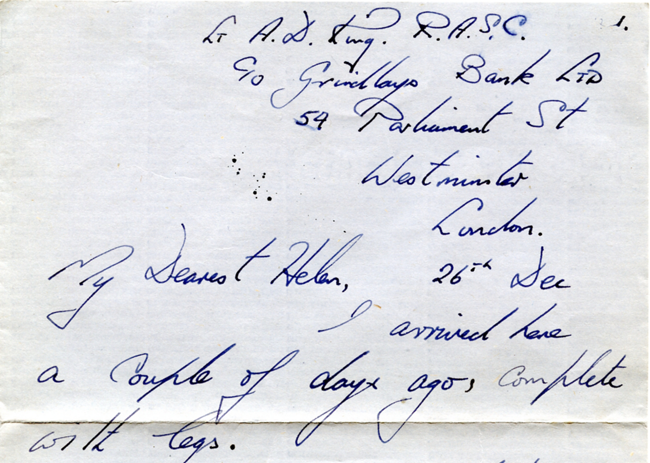 1.
Lt A.D. King. R.A.S.C.
c/o Grindlays Bank Ltd
54 Parliament St
Westminster
London.
My Dearest Helen, 26th Dec
I arrived here
a couple of days ago, complete
with legs.